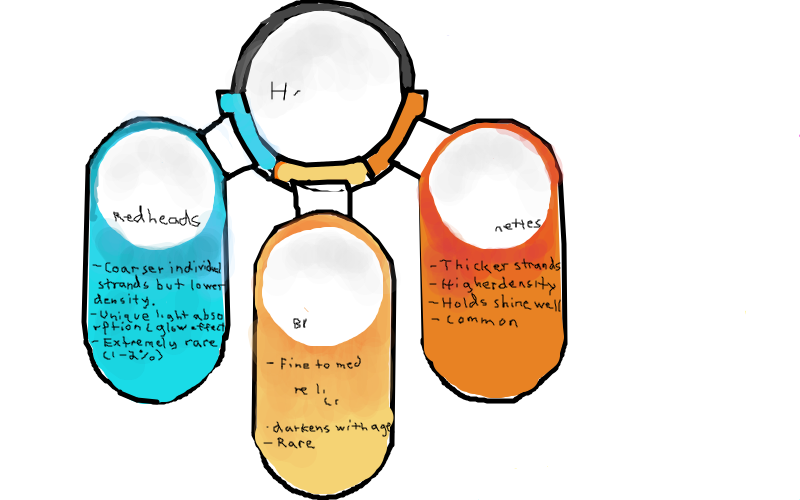 Redheads
- Coarser individual
strands but lower
density.
- Unique light abso
rption (glow effect
- Extremely rare
(1-2%)
- Fine to med
darkens with age
- Rare
nettes
- Thicker strands
- Higher density
- Holds shine well
- Common